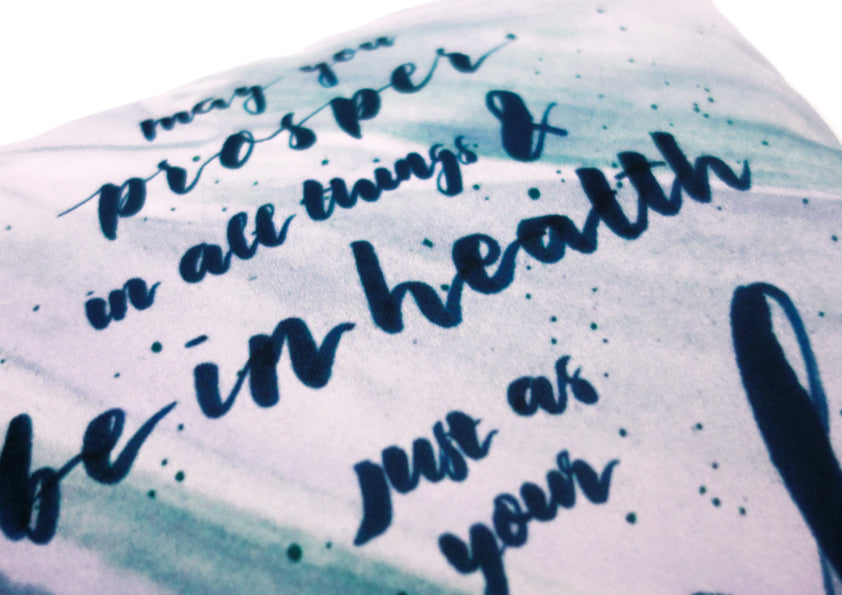 may you
prosper
in all things &
be in health
just as
your